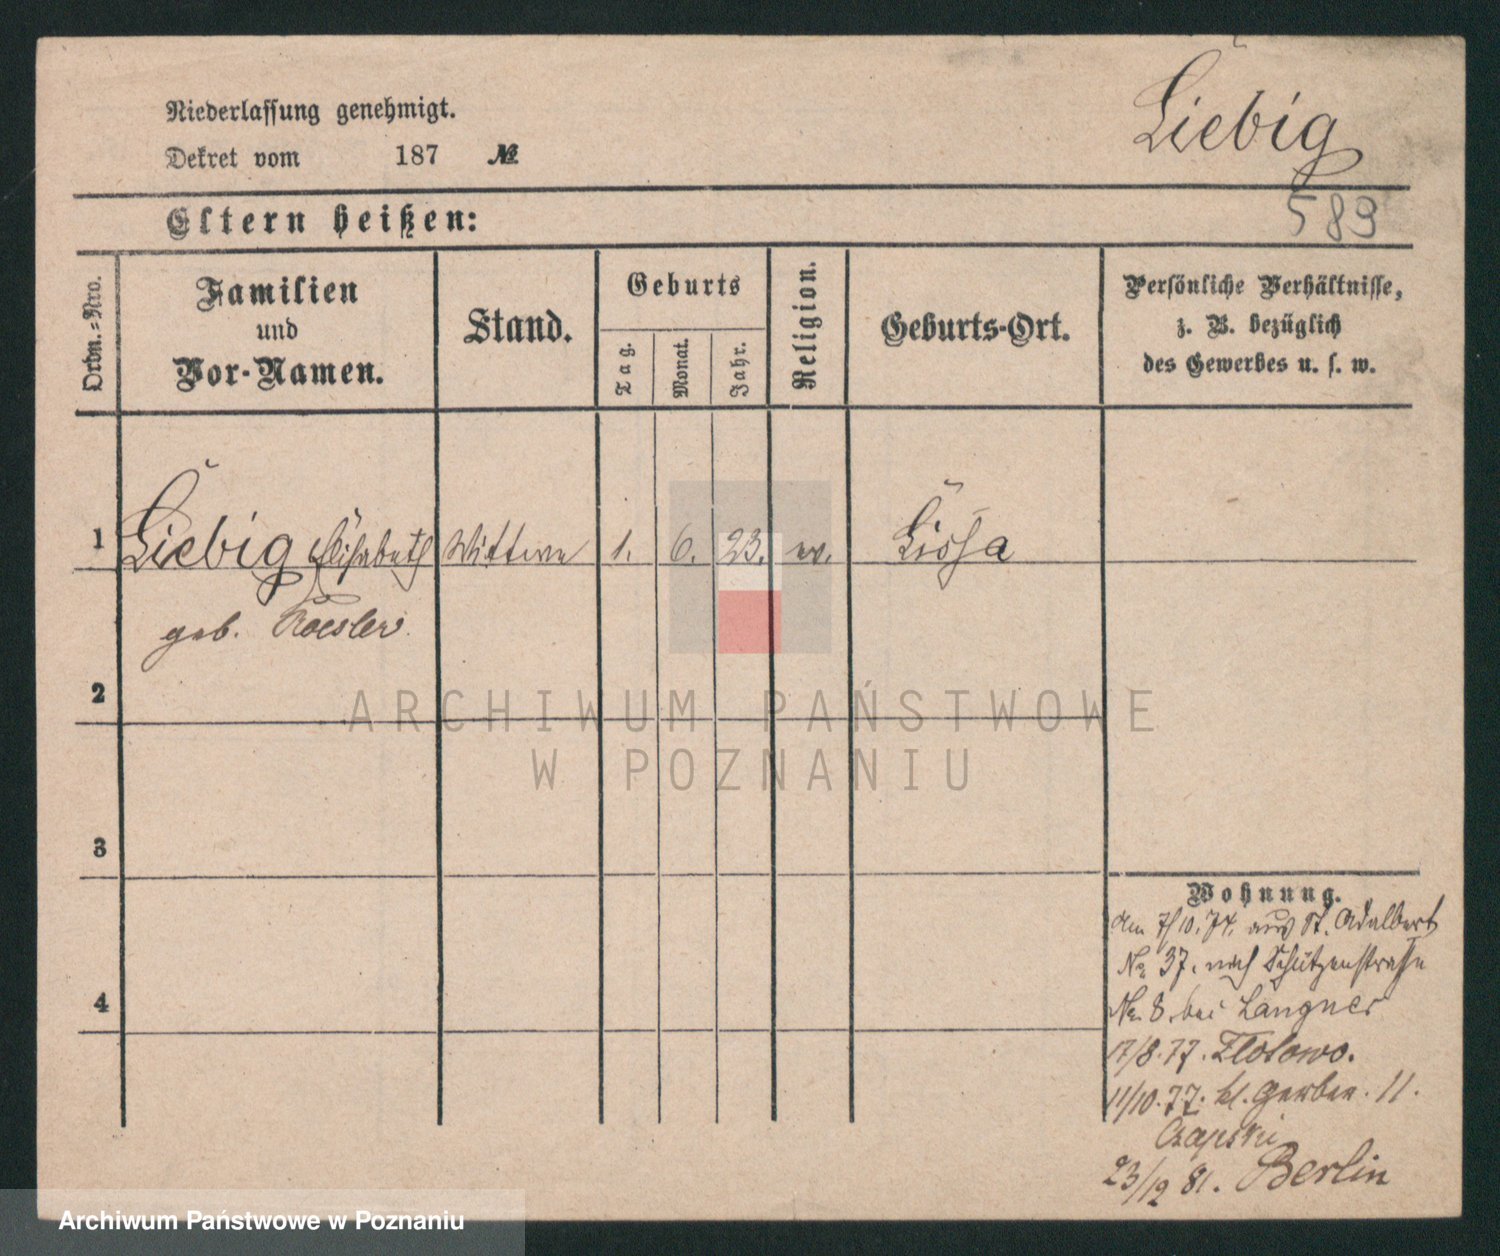 Niederlassung genehmigt.
Liebig
Dekret vom 187 №
Eltern heißen:
589
Ordn.-Nro.
Familien
und
Vor-Namen.
Stand.
Geburts
Tag.
Monat.
Jahr.
Religion.
Geburts-Ort.
Persönliche Verhältnisse,
z. B. bezüglich
des Gewerbes u. s. w.
1 Liebig Elisabeth Wittwe 1. 6. 23. ev. Lissa
geb. Roesler
2
ARCHIWUM PAŃSTWOWE
W POZNANIU
3
Wohnung.
Am 7/10. 74. aus St. Adalbert
No 37. nach Schützenstrasse
No 8. bei Langner
4
17/8. 77. Zlotowo.
11/10. 77. kl. Gerber. 11.
Czapski
23/12 81. Berlin
Archiwum Państwowe w Poznaniu